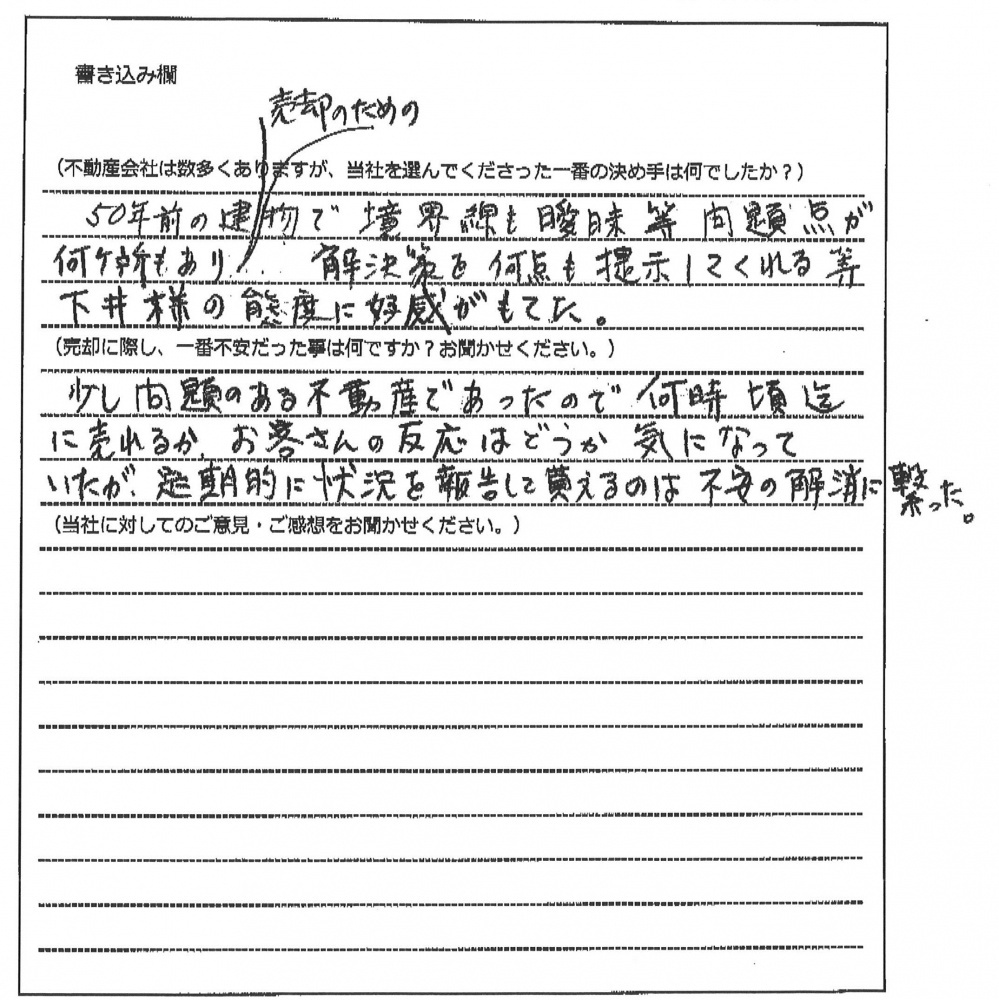 書き込み欄
売却のための
（不動産会社は数多くありますが、当社を選んでくださった一番の決め手は何でしたか？）
50年前の建物で境界線も曖昧等問題点が
何ヶ所もあり、解決策を何点も提示してくれる等
下井様の態度に好感がもてた。
（売却に際し、一番不安だった事は何ですか？お聞かせください。）
少し問題のある不動産であったので何時頃迄
に売れるか、お客さんの反応はどうか気になって
いたが、定期的に状況を報告して貰えるのは不安の解消に繋った。
（当社に対してのご意見・ご感想をお聞かせください。）